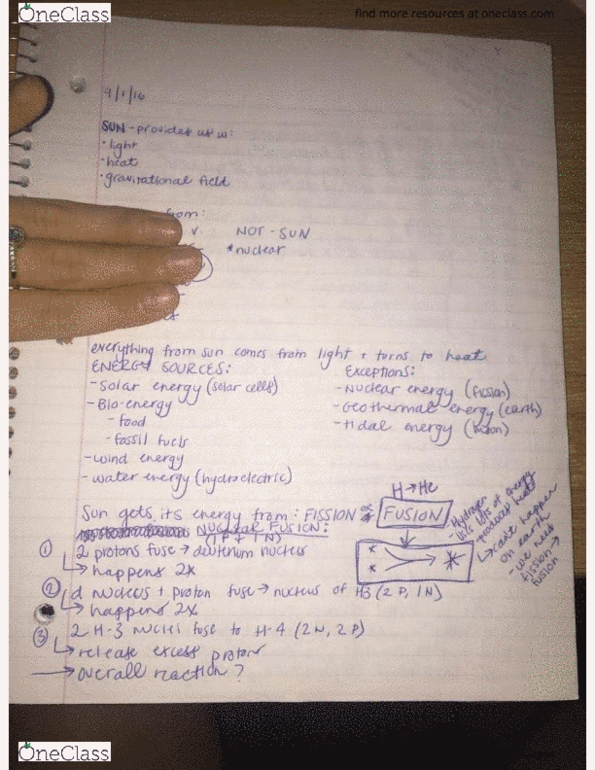 OneClass
find more resources at oneclass.com
9/1/16
SUN - provides us w:
• light
• heat
• gravitational field
from:
v. NOT - SUN
* nuclear
everything from sun comes from light + turns to heat
ENERGY SOURCES:
- Solar energy (solar cells)
- Bio-energy
- food
- fossil fuels
- wind energy
- water energy (hydroelectric)
Exceptions:
- Nuclear energy (fission)
- Geothermal energy (earth)
- Tidal energy (moon)
Sun gets its energy from: FISSION or FUSION
H → He
NUCLEAR FUSION:
(1P + 1N)
① 2 protons fuse → deuterium nucleus
→ happens 2x
② d nucleus + proton fuse → nucleus of H3 (2P, 1N)
→ happens 2x
③ 2 H-3 nuclei fuse to H-4 (2N, 2P)
→ release excess proton
→ overall reaction?
- Hydrogen
uses lots of energy
- produces heat
→ can't happen
on earth
- we need
fission →
fusion
OneClass